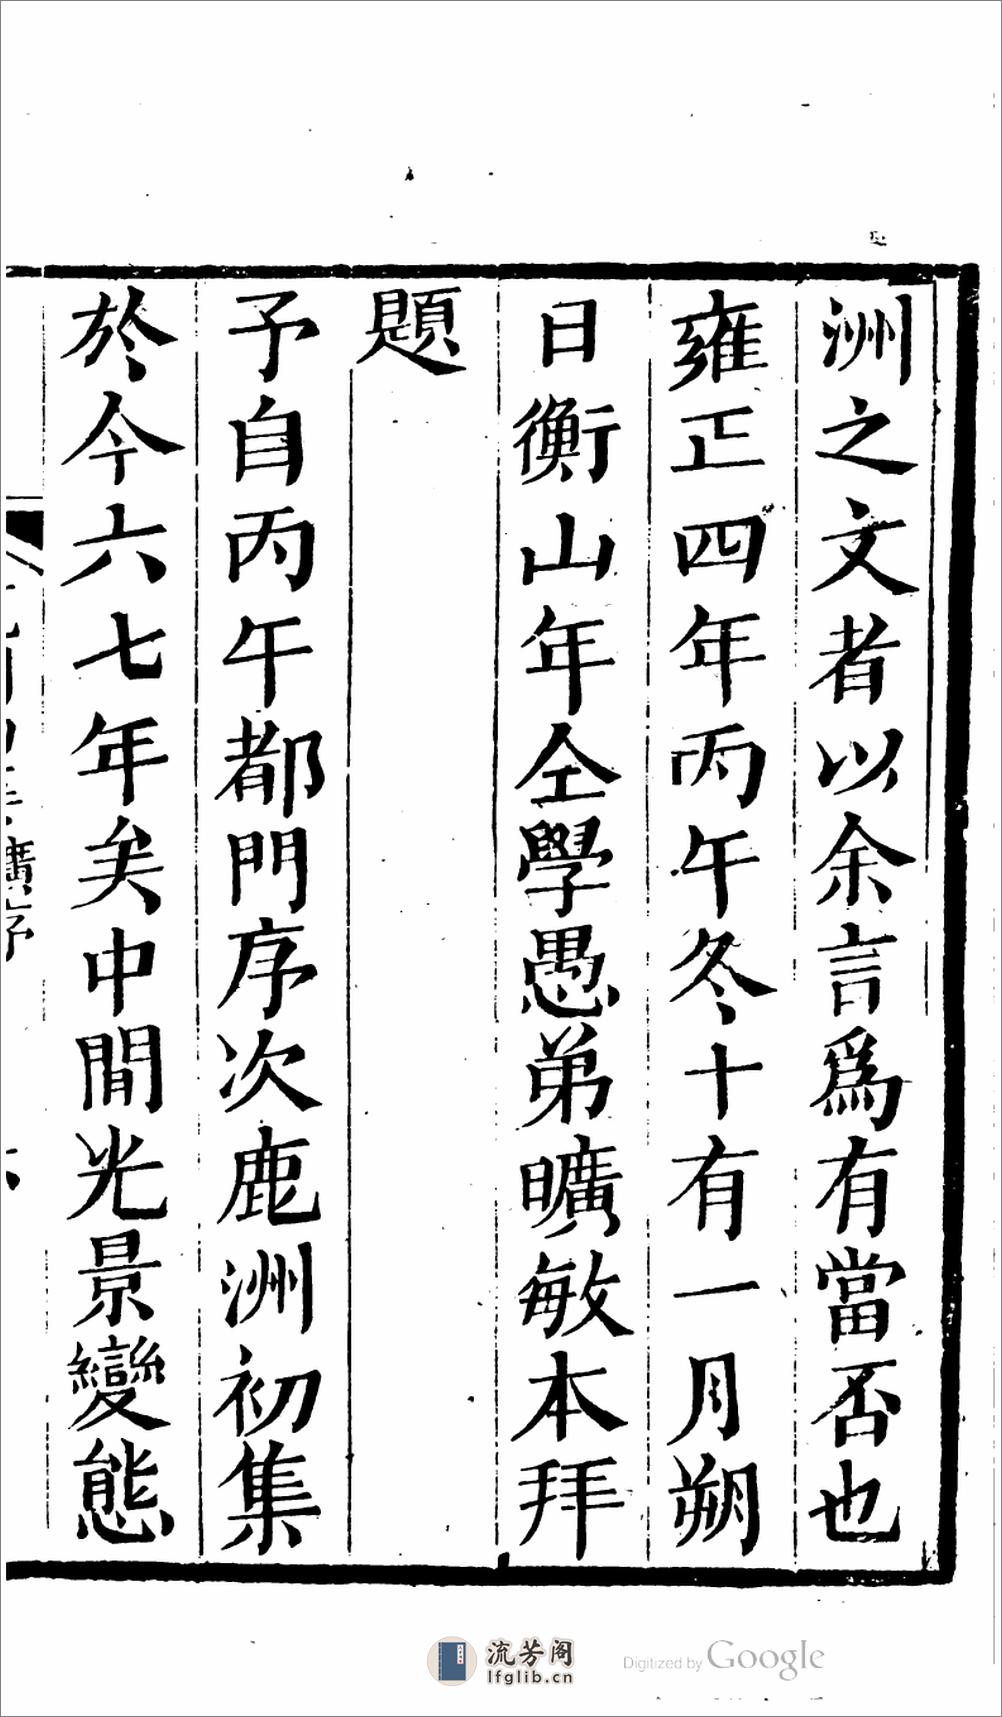 洲之文者以余言爲有當否也
雍正四年丙午冬十有一月朔
日衡山年仝學愚弟曠敏本拜
題
予自丙午都門序次鹿洲初集
於今六七年矣中間光景變態
流芳阁
lfglib.cn
Digitized by Google